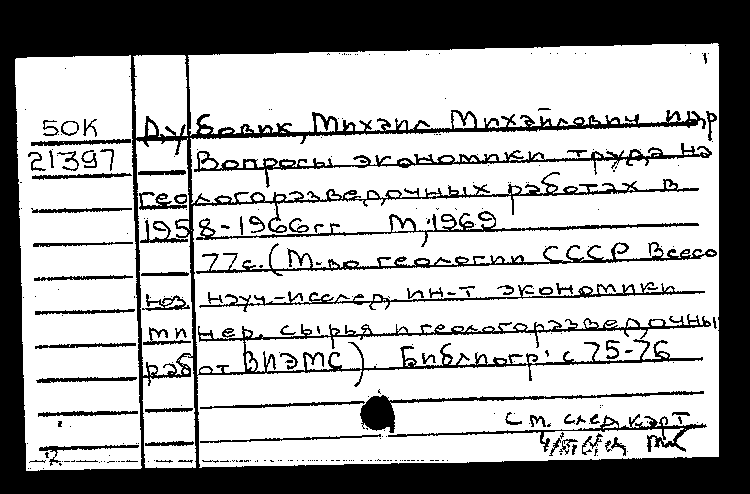 50К Дубовик, Михаил Михайлович и др
21397 Вопросы экономики труда на
геологоразведочных работах в
1958-1966гг М, 1969
77с. (М-во геологии СССР Всесо
юз науч-исслед, ин-т экономики
минер. сырья и геологоразведочны
работ ВИЭМС). Библиогр: с 75-76
См. след карт